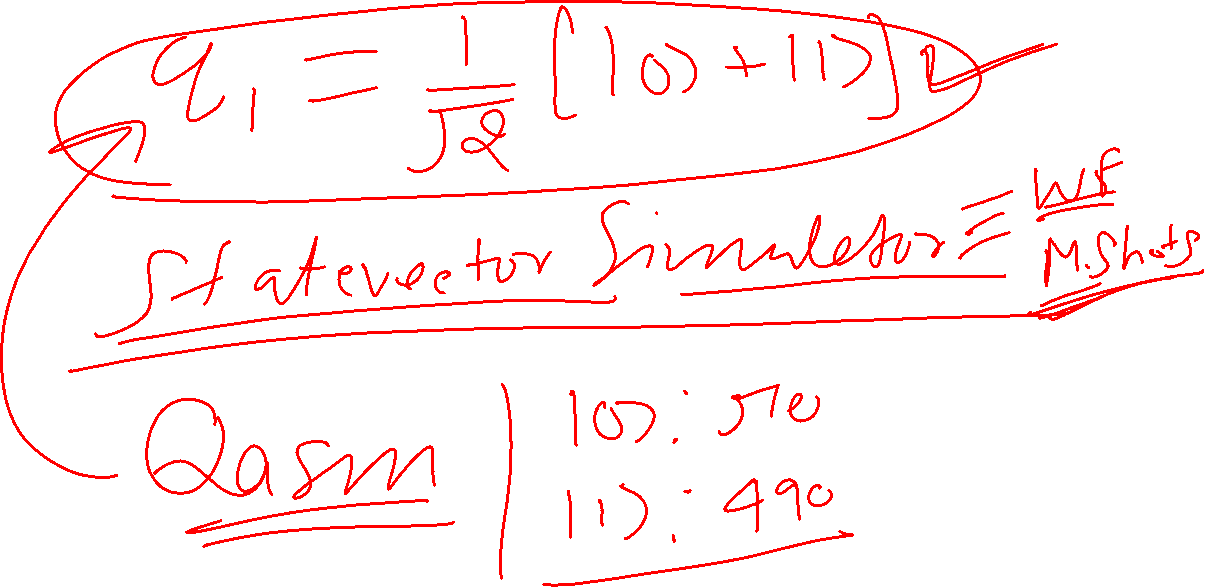 q₁ = 1/√2 [|0⟩ + |1⟩]
Statevector Simuletor ≡ WF
M.Shots
Qasm | |0⟩: 510
|1⟩: 490